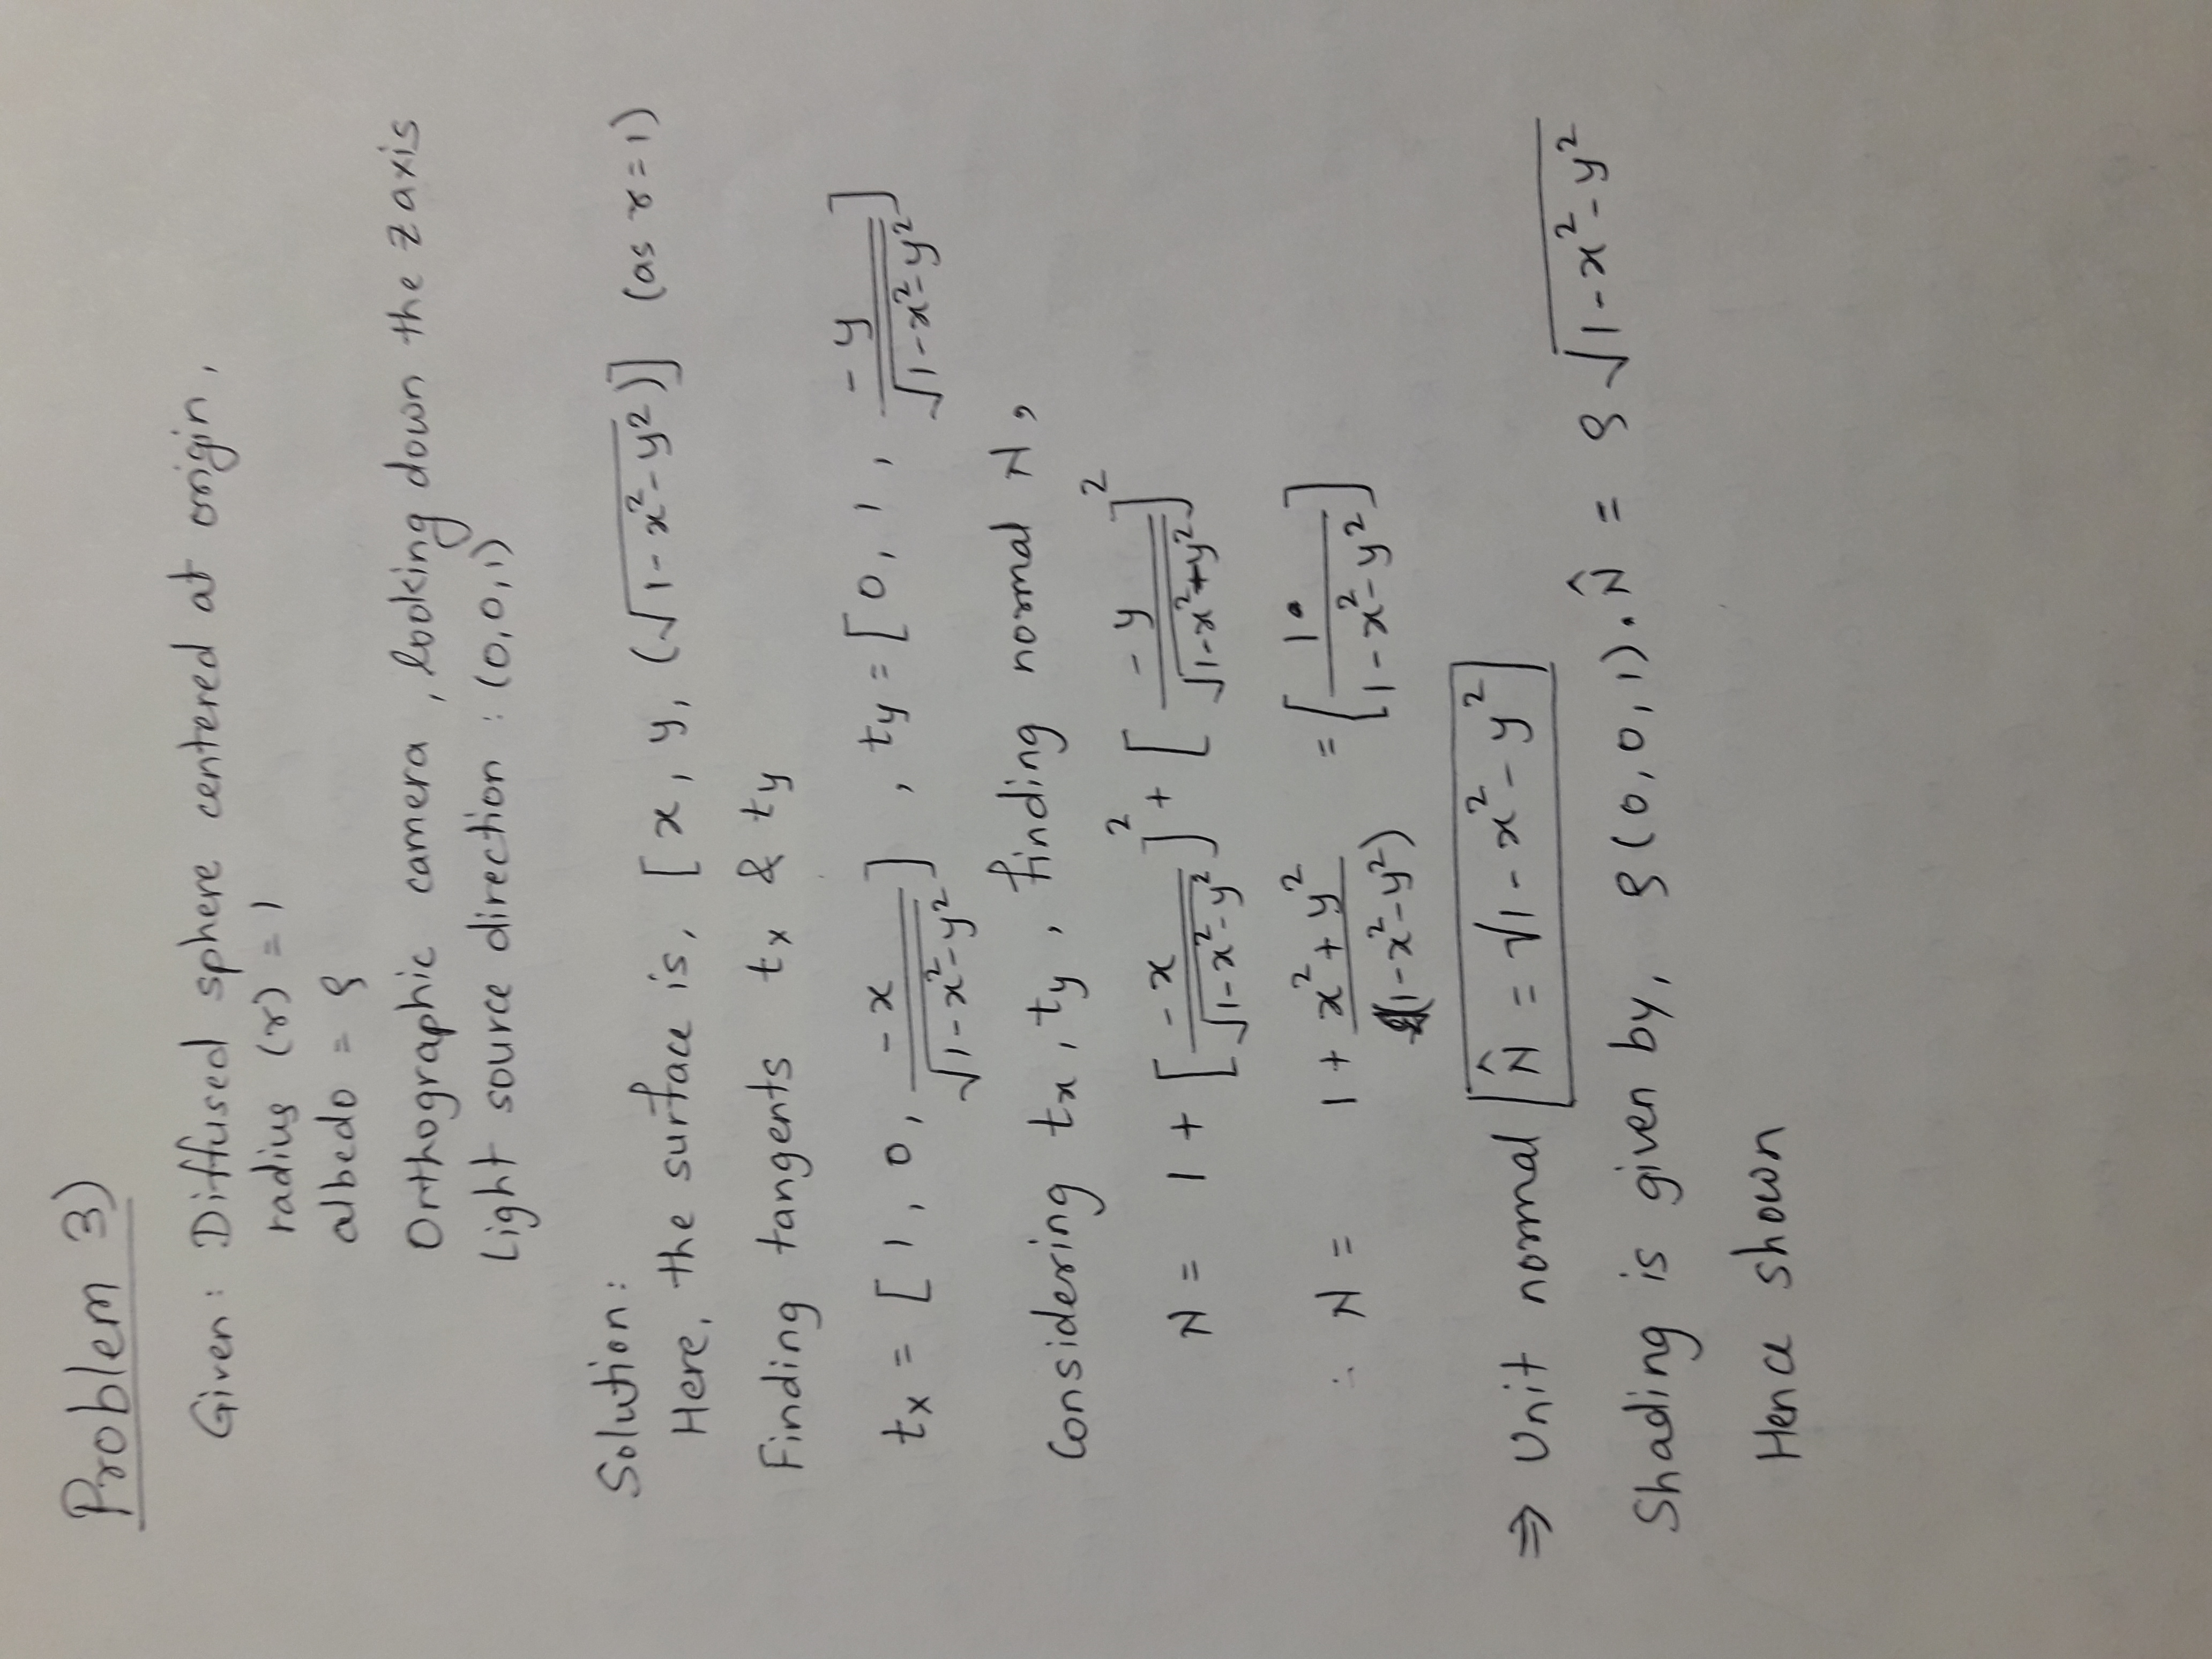 Problem 3)
Given: Diffused sphere centered at origin,
radius (r) = 1
albedo = ρ
Orthographic camera, looking down the z axis
Light source direction : (0,0,1)
Solution:
Here, the surface is, [x, y, (√(1-x²-y²))] (as r=1)
Finding tangents tx & ty
tx = [1, 0, -x/√(1-x²-y²)], ty = [0, 1, -y/√(1-x²-y²)]
Considering tx, ty, finding normal N,
N = 1 + [-x/√(1-x²-y²)]² + [-y/√(1-x²+y²)]²
∴ N = 1 + (x²+y²)/(1-x²-y²) = [1/(1-x²-y²)]
⇒ Unit normal N̂ = √(1-x²-y²)
Shading is given by, ρ(0,0,1).N̂ = ρ√(1-x²-y²)
Hence shown